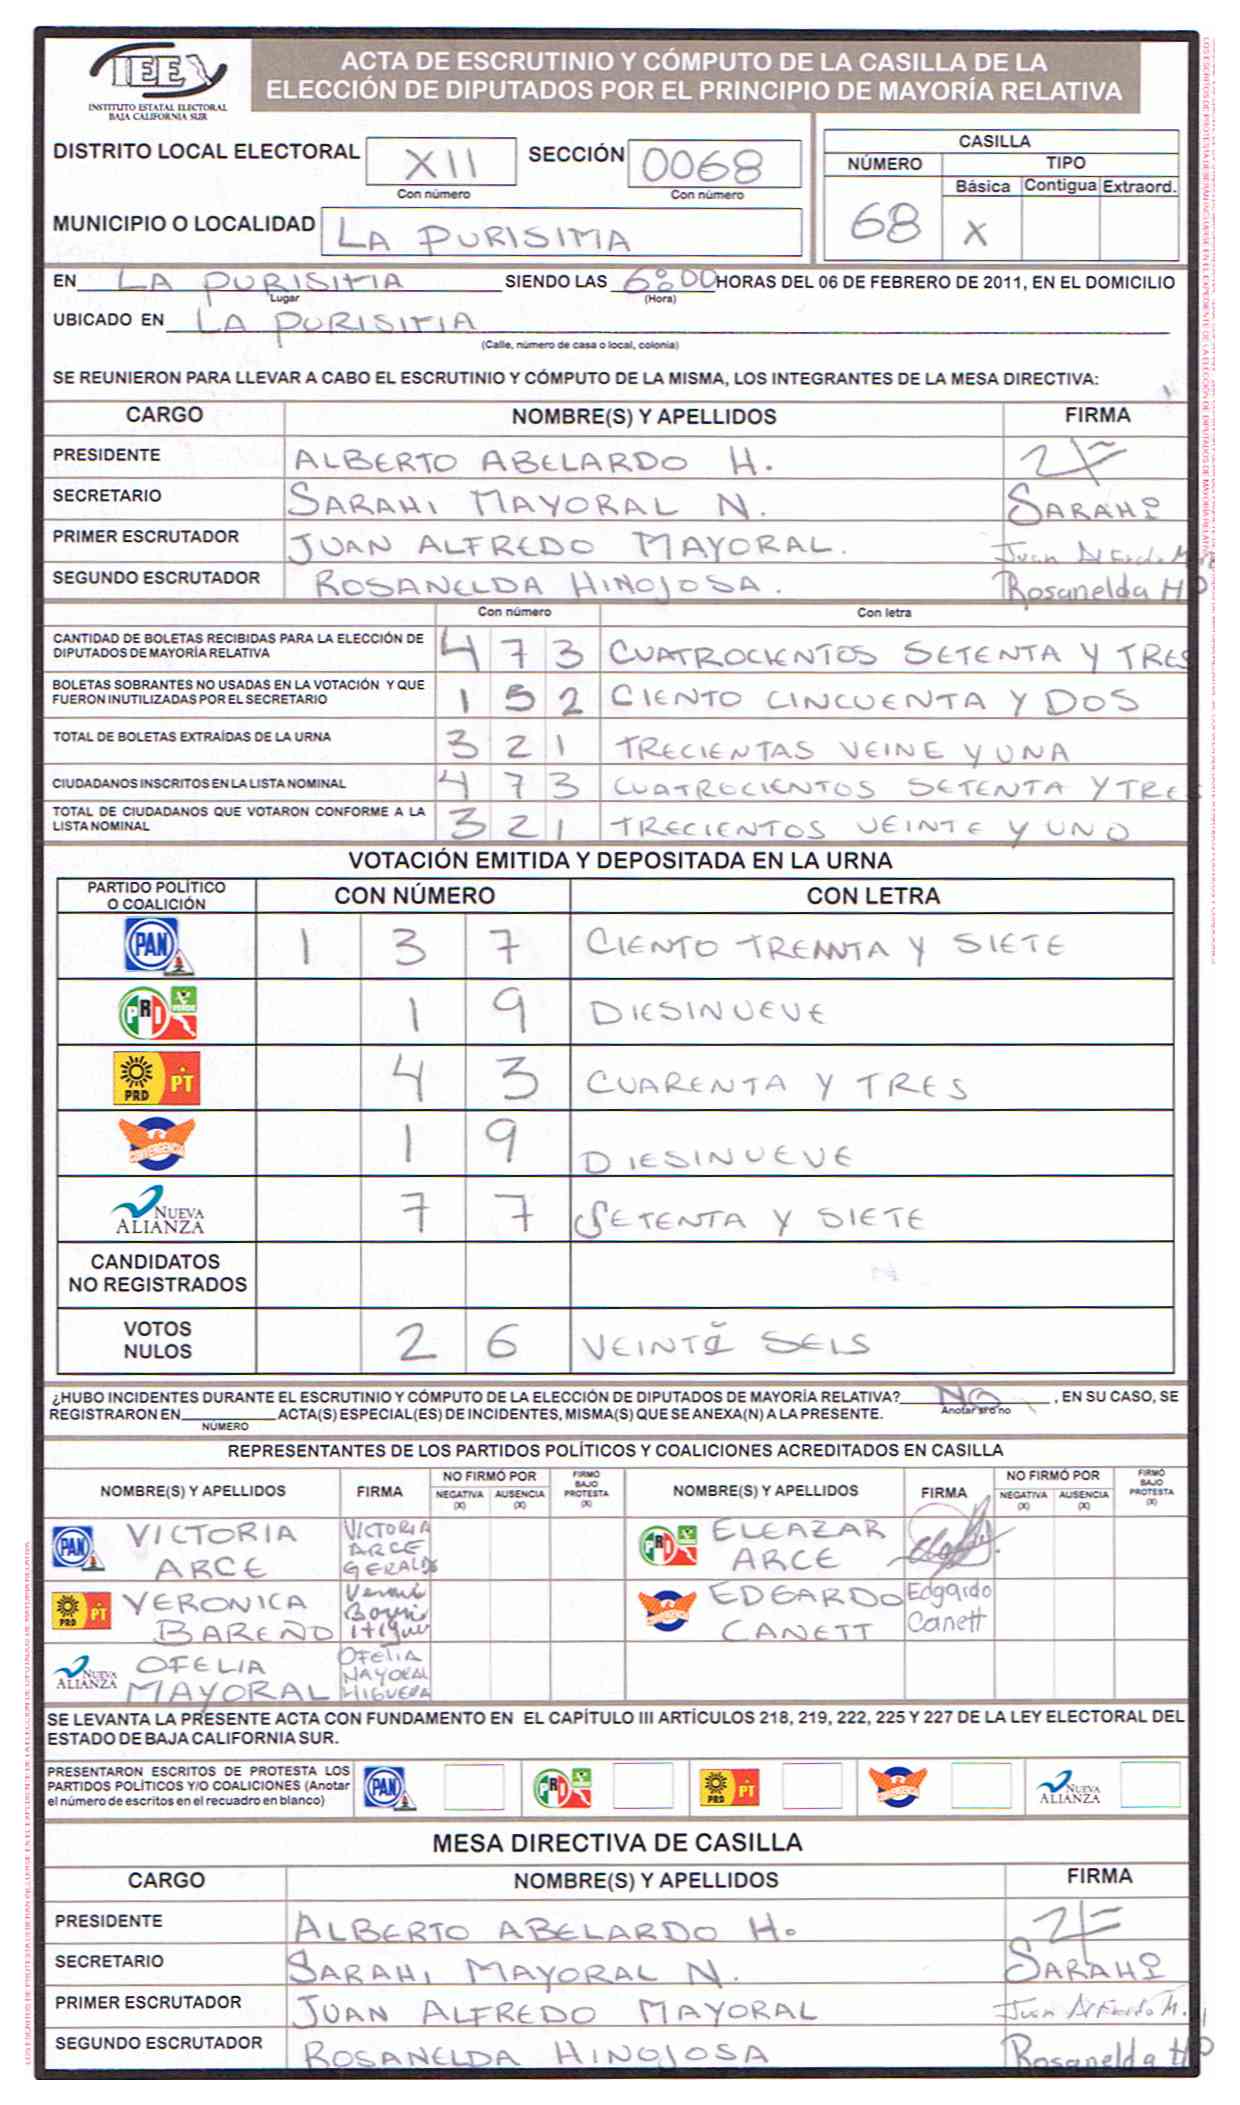 IEE
INSTITUTO ESTATAL ELECTORAL
BAJA CALIFORNIA SUR
ACTA DE ESCRUTINIO Y CÓMPUTO DE LA CASILLA DE LA
ELECCIÓN DE DIPUTADOS POR EL PRINCIPIO DE MAYORÍA RELATIVA
DISTRITO LOCAL ELECTORAL XII SECCIÓN 0068
Con número Con número
MUNICIPIO O LOCALIDAD LA PURISIMA
CASILLA
NÚMERO TIPO
Básica Contigua Extraord.
68 X
EN LA PURISIMA SIENDO LAS 6:00 HORAS DEL 06 DE FEBRERO DE 2011, EN EL DOMICILIO
Lugar (Hora)
UBICADO EN LA PURISIMA
(Calle, número de casa o local, colonia)
SE REUNIERON PARA LLEVAR A CABO EL ESCRUTINIO Y CÓMPUTO DE LA MISMA, LOS INTEGRANTES DE LA MESA DIRECTIVA:
CARGO NOMBRE(S) Y APELLIDOS FIRMA
PRESIDENTE ALBERTO ABELARDO H.
SECRETARIO SARAHI MAYORAL N. SARAHI
PRIMER ESCRUTADOR JUAN ALFREDO MAYORAL. Juan Alfredo
SEGUNDO ESCRUTADOR ROSANELDA HINOJOSA. Rosanelda H
Con número Con letra
CANTIDAD DE BOLETAS RECIBIDAS PARA LA ELECCIÓN DE
DIPUTADOS DE MAYORÍA RELATIVA 473 CUATROCIENTOS SETENTA Y TRES
BOLETAS SOBRANTES NO USADAS EN LA VOTACIÓN Y QUE
FUERON INUTILIZADAS POR EL SECRETARIO 152 CIENTO CINCUENTA Y DOS
TOTAL DE BOLETAS EXTRAÍDAS DE LA URNA 321 TRECIENTAS VEINE Y UNA
CIUDADANOS INSCRITOS EN LA LISTA NOMINAL 473 CUATROCIENTOS SETENTA Y TRES
TOTAL DE CIUDADANOS QUE VOTARON CONFORME A LA
LISTA NOMINAL 321 TRECIENTOS VEINTE Y UNO
VOTACIÓN EMITIDA Y DEPOSITADA EN LA URNA
PARTIDO POLÍTICO
O COALICIÓN CON NÚMERO CON LETRA
PAN 1 3 7 CIENTO TREINTA Y SIETE
PRI 1 9 DIESINUEVE
PRD PT 4 3 CUARENTA Y TRES
CONVERGENCIA 1 9 DIESINUEVE
NUEVA ALIANZA 7 7 SETENTA Y SIETE
CANDIDATOS
NO REGISTRADOS
VOTOS
NULOS 2 6 VEINTI SEIS
¿HUBO INCIDENTES DURANTE EL ESCRUTINIO Y CÓMPUTO DE LA ELECCIÓN DE DIPUTADOS DE MAYORÍA RELATIVA? NO , EN SU CASO, SE
Anotar si o no
REGISTRARON EN ACTA(S) ESPECIAL(ES) DE INCIDENTES, MISMA(S) QUE SE ANEXA(N) A LA PRESENTE.
NÚMERO
REPRESENTANTES DE LOS PARTIDOS POLÍTICOS Y COALICIONES ACREDITADOS EN CASILLA
NOMBRE(S) Y APELLIDOS FIRMA NO FIRMÓ POR NEGATIVA (X) AUSENCIA (X) FIRMÓ BAJO PROTESTA (X) NOMBRE(S) Y APELLIDOS FIRMA NO FIRMÓ POR NEGATIVA (X) AUSENCIA (X) FIRMÓ BAJO PROTESTA (X)
PAN VICTORIA ARCE VICTORIA ARCE PRI ELEAZAR ARCE
PRD PT VERONICA BAREÑO EDGARDO CANETT Edgardo Canett
NUEVA ALIANZA OFELIA MAYORAL OFELIA MAYORAL HIGUERA
SE LEVANTA LA PRESENTE ACTA CON FUNDAMENTO EN EL CAPÍTULO III ARTÍCULOS 218, 219, 222, 225 Y 227 DE LA LEY ELECTORAL DEL
ESTADO DE BAJA CALIFORNIA SUR.
PRESENTARON ESCRITOS DE PROTESTA LOS
PARTIDOS POLÍTICOS Y/O COALICIONES (Anotar
el número de escritos en el recuadro en blanco) PAN PRI PRD PT NUEVA ALIANZA
MESA DIRECTIVA DE CASILLA
CARGO NOMBRE(S) Y APELLIDOS FIRMA
PRESIDENTE ALBERTO ABELARDO H.
SECRETARIO SARAHI MAYORAL N. SARAHI
PRIMER ESCRUTADOR JUAN ALFREDO MAYORAL Juan Alfredo M.
SEGUNDO ESCRUTADOR ROSANELDA HINOJOSA Rosanelda H